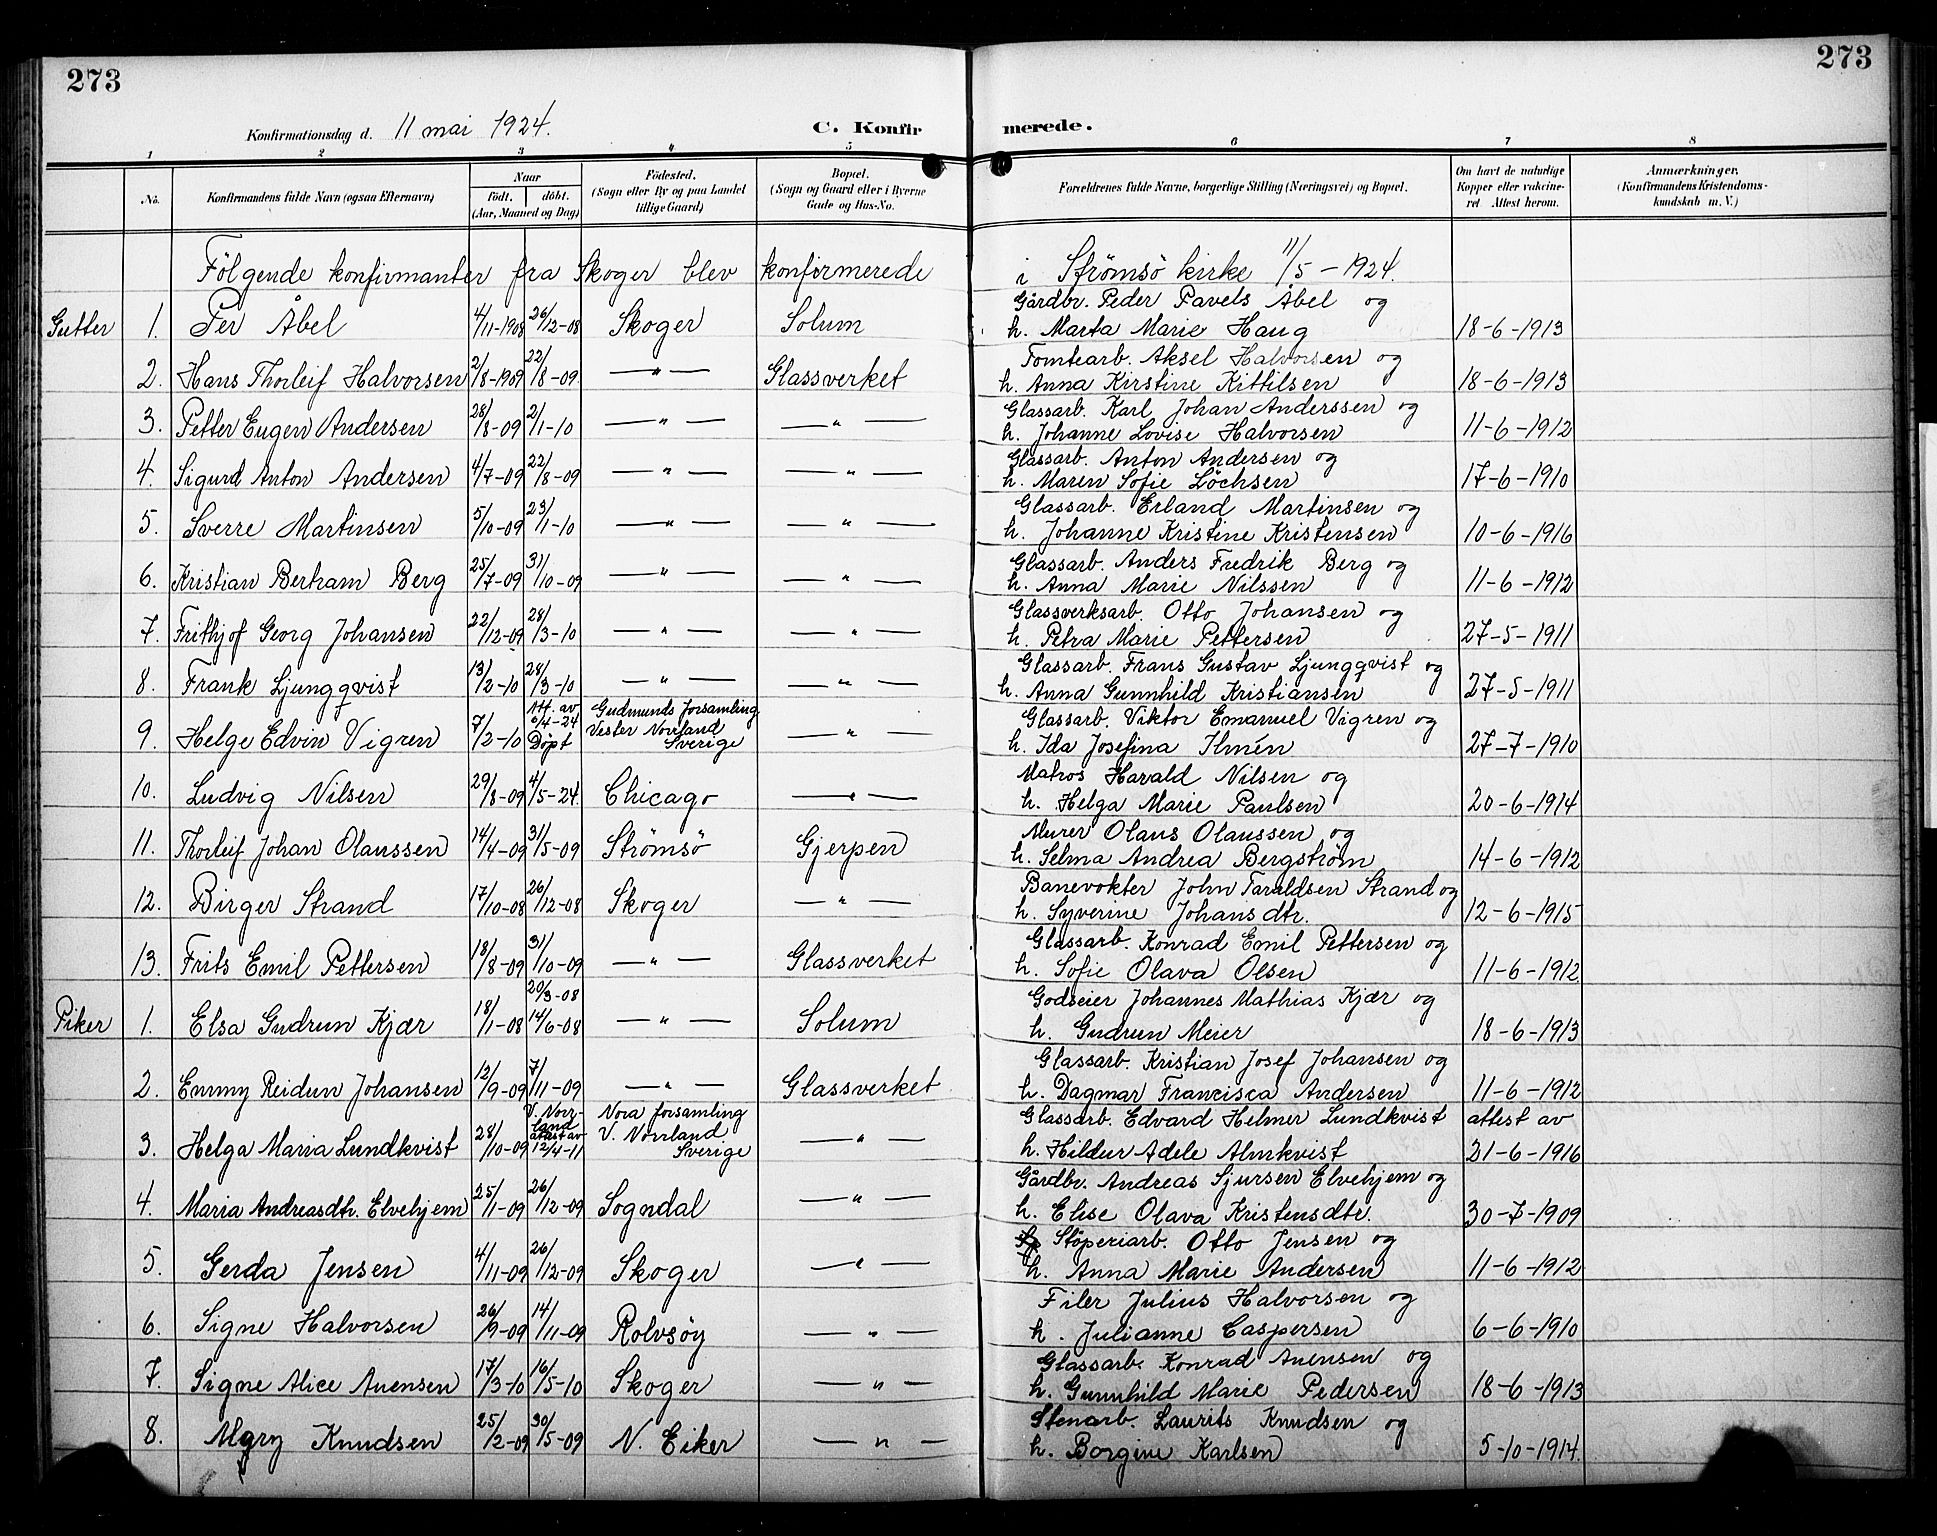 273 273
Konfirmationsdag d. 11 mai 1924. C. Konfirmerede.
1 2 3 4 5 6 7 8
No. Konfirmandens fulde Navn (ogsaa Efternavn) Naar født. døbt. (Aar, Maaned og Dag) Fødested. (Sogn eller By og paa Landet tillige Gaard) Bopæl. (Sogn og Gaard eller i Byerne Gade og Hus-No. Forældrenes fulde Navne, borgerlige Stilling (Næringsvei) og Bopæl. Om havt de naturlige Kopper eller vaccineret Attest herom. Anmærkninger. (Konfirmandens Kristendomskundskab m. V.)
Følgende konfirmanter fra Skoger blev konfirmerede i Strømsö kirke 11/5-1924.
Gutter 1. Per Åbel 4/11-1908 26/12-08 Skoger Solum Gårdbr. Peder Pavels Åbel og h. Marta Marie Haug 18-6-1913
2. Hans Thorleif Halvorsen 2/8-1909 22/8-09. — " — Glassverket Tomtearb. Aksel Halvorsen og h. Anna Kirstine Kittilsen 18-6-1913
3. Petter Eugen Andersen 28/8-09 2/1-10 — " — — " — Glassarb. Karl Johan Anderssen og h. Johanne Lovise Halvorsen 11-6-1912
4. Sigurd Anton Andersen 4/7-09 22/8-09 — " — — " — Glassarb. Anton Andersen og h. Maren Sofie Löchsen 17-6-1910
5. Sverre Martinsen 5/10-09 23/1-10 — " — — " — Glassarb. Erland Martinsen og h. Johanne Kristine Kristensen 10-6-1916
6. Kristian Bertram Berg 25/7-09 31/10-09 — " — — " — Glassarb. Anders Fredrik Berg og h. Anna Marie Nilssen 11-6-1912
7. Frithjof Georg Johansen 22/12-09 28/3-10 — " — — " — Glassverksarb. Otto Johansen og h. Petra Marie Pettersen 27-5-1911
8. Frank Ljungqvist 13/2-10 28/3-10 — " — — " — Glassarb. Frans Gustav Ljungqvist og h. Anna Gunnhild Kristiansen 27-5-1911
9. Helge Edvin Vigren 7/2-10 Att. av 6/4-24 Döpt Gudmunds forsamling Vester Norrland Sverige — " — Glassarb. Viktor Emanuel Vigren og h. Ida Josefina Ilmén 27-7-1910
10. Ludvig Nilsen 29/8-09 4/5-24. Chicago — " — Matros Harald Nilsen og h. Helga Marie Paulsen 20-6-1914
11. Thorleif Johan Olaussen 14/4-09 31/5-09 Strömsö Gjerpen Murer Olaus Olaussen og h. Selma Andrea Bergström 14-6-1912
12. Birger Strand 17/10-08 26/12-08 Skoger — " — Banevokter John Taraldsen Strand og h. Syverine Johansdtr. 12-6-1915
13. Frits Emil Pettersen 18/8-09 31/10-09 — " — Glassverket Glassarb. Konrad Emil Pettersen og h. Sofie Olava Olsen 11-6-1912
Piker 1. Elsa Gudrun Kjær 18/1-08 20/3-08 14/6-08 — " — Solum Godseier Johannes Mathias Kjær og h. Gudrun Meier 18-6-1913
2. Emmy Reidun Johansen 12/9-09 7/11-09 — " — Glassverket Glassarb. Kristian Josef Johansen og h. Dagmar Francisca Andersen 11-6-1912
3. Helga Maria Lundkvist 28/10-09 V. Norrland attest av 12/4-11 Nora forsamling V. Norrland Sverige — " — Glassarb. Edvard Helmer Lundkvist h. Hildur Adele Almkvist attest av 21-6-1916
4. Maria Andreasdtr. Elvehjem 25/11-09 26/12-09 Sogndal — " — Gårdbr. Andreas Sjursen Elvehjem og h. Elise Olava Kristensdtr. 30-7-1909
5. Gerda Jensen 4/11-09 26/12-09 Skoger — " — Stöperiarb. Otto Jensen og h. Anna Marie Andersen 11-6-1912
6. Signe Halvorsen 26/9-09 14/11-09 Rolvsöy — " — Filer Julius Halvorsen og h. Julianne Caspersen 6-6-1910
7. Signe Alice Auensen 17/3-10 16/5-10 Skoger — " — Glassarb. Konrad Auensen og h. Gunnhild Marie Pedersen 18-6-1913
8. Knudsen 25/2-09 30/5-09 N. Eiker — " — Stenarb. Laurits Knudsen og h. Borgine Karlsen 5-10-1914.